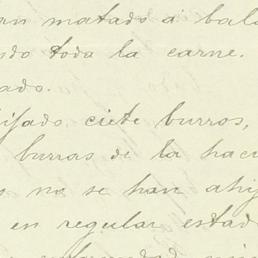 matado a bala
ndo toda la carne.
ado.
ijado ciete burros,
burras de la haci
s no se han ahij
en regular estad